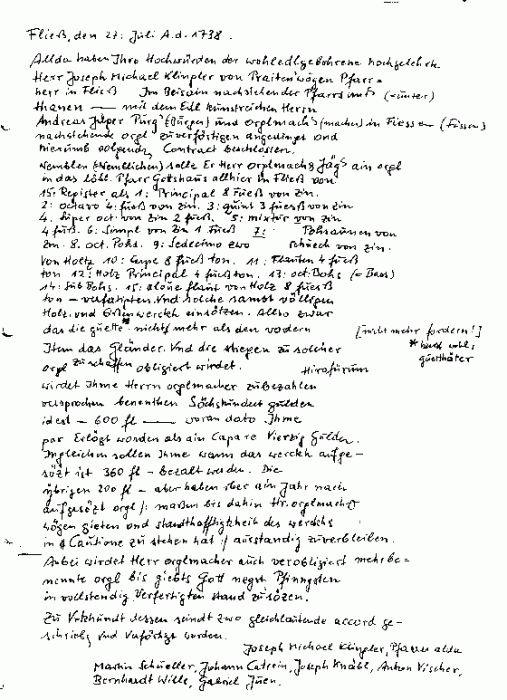 Fließ, den 27: Juli A.d. 1738.
Allda haben Ihro Hochwürden der wohledlgebohrene hochgelehrte
Herr Joseph Michael Klingler von Praitenwägen Pfarr=
herr in Fließ Im Beisein nachstehender Pfarrsunter (=unter)
thanen — mit dem Edl kunstreichen Herrn
Andreas Jäger Purg (Bürger) und orglmach3 (macher) in Fiessen (Füssen)
nachstehende orgl zu verförtigen angedingt und
hierumb volgendn Contract beschlossen.
Nemblen (Nemblichen) solle Er Herr orglmach3 Jäg3 ain orgl
in das löbl. Pfarr Gottshaus allhier in Fließ von
15: Register als 1: Principal 8 Fueß von Zin.
2: octavo 4: fueß von Zin. 3: quint 3 fuesß von Zin
4: super oct. von Zin 2 fueß. 5: mixtur von Zin
4 fueß. 6: Simpl von Zin 1 Fueß 7: Pohsaunen von
Zin. 8. oct. Pohs. 9: Sedecimo zwo schuech von Zin.
Von Holtz 10: Copl 8 fueß ton. 11: Flauten 4 fueß
ton 12: Holz Principal 4 fueß ton. 13: oct: Bohs (= Bass)
14: Sub Bohs. 15: alone flaut von Holz 8 fueß
ton – verförtigen. Und solche sambt völligen
Holz und Eisenwerckh einsötzen. Allso zwar
das die guette nichts mehr als den vodern [nicht mehr fordern!]
Item das Gländer. Und die stiegen zu solcher
orgl zu schaffen obligiert wirdet. Hirofürumb
wirdet Ihme Herrn orglmacher zu bezahlen
versprochen benentlich Söchshundert gulden
idest – 600 fl — woran dato Ihme
par Erlögt worden als ain Capare Vierzig Gulden.
Ingleichen sollen Ihme wann das werckh aufge-
sözt ist 360 fl – bezalt werden. Die
übrigen 200 fl – aber haben yber ain Jahr nach
aufgesözt orgl /: maßen bis dahin Hr. orglmach3
wögen gieten und standhafftigkheit des werckhs
in Cautione zu stehen hat :/ ausstandig zu verbleiben.
Anbei wirdet Herr orglmacher auch verobligiert mehrbe=
nennte orgl bis giebts Gott negst Pfinngsten
in vollstendig verfertigten stand zu sözen.
Zu Urkhundt dessen seindt zwo gleichlautende accord ge-
schriebn und verförtigt worden.
Joseph Michael Klingler, Pfarrer alda
Martin Schueller, Johann Catrein, Joseph Knabl, Anton Vischer,
Bernhardt Wille, Gabriel Juen.